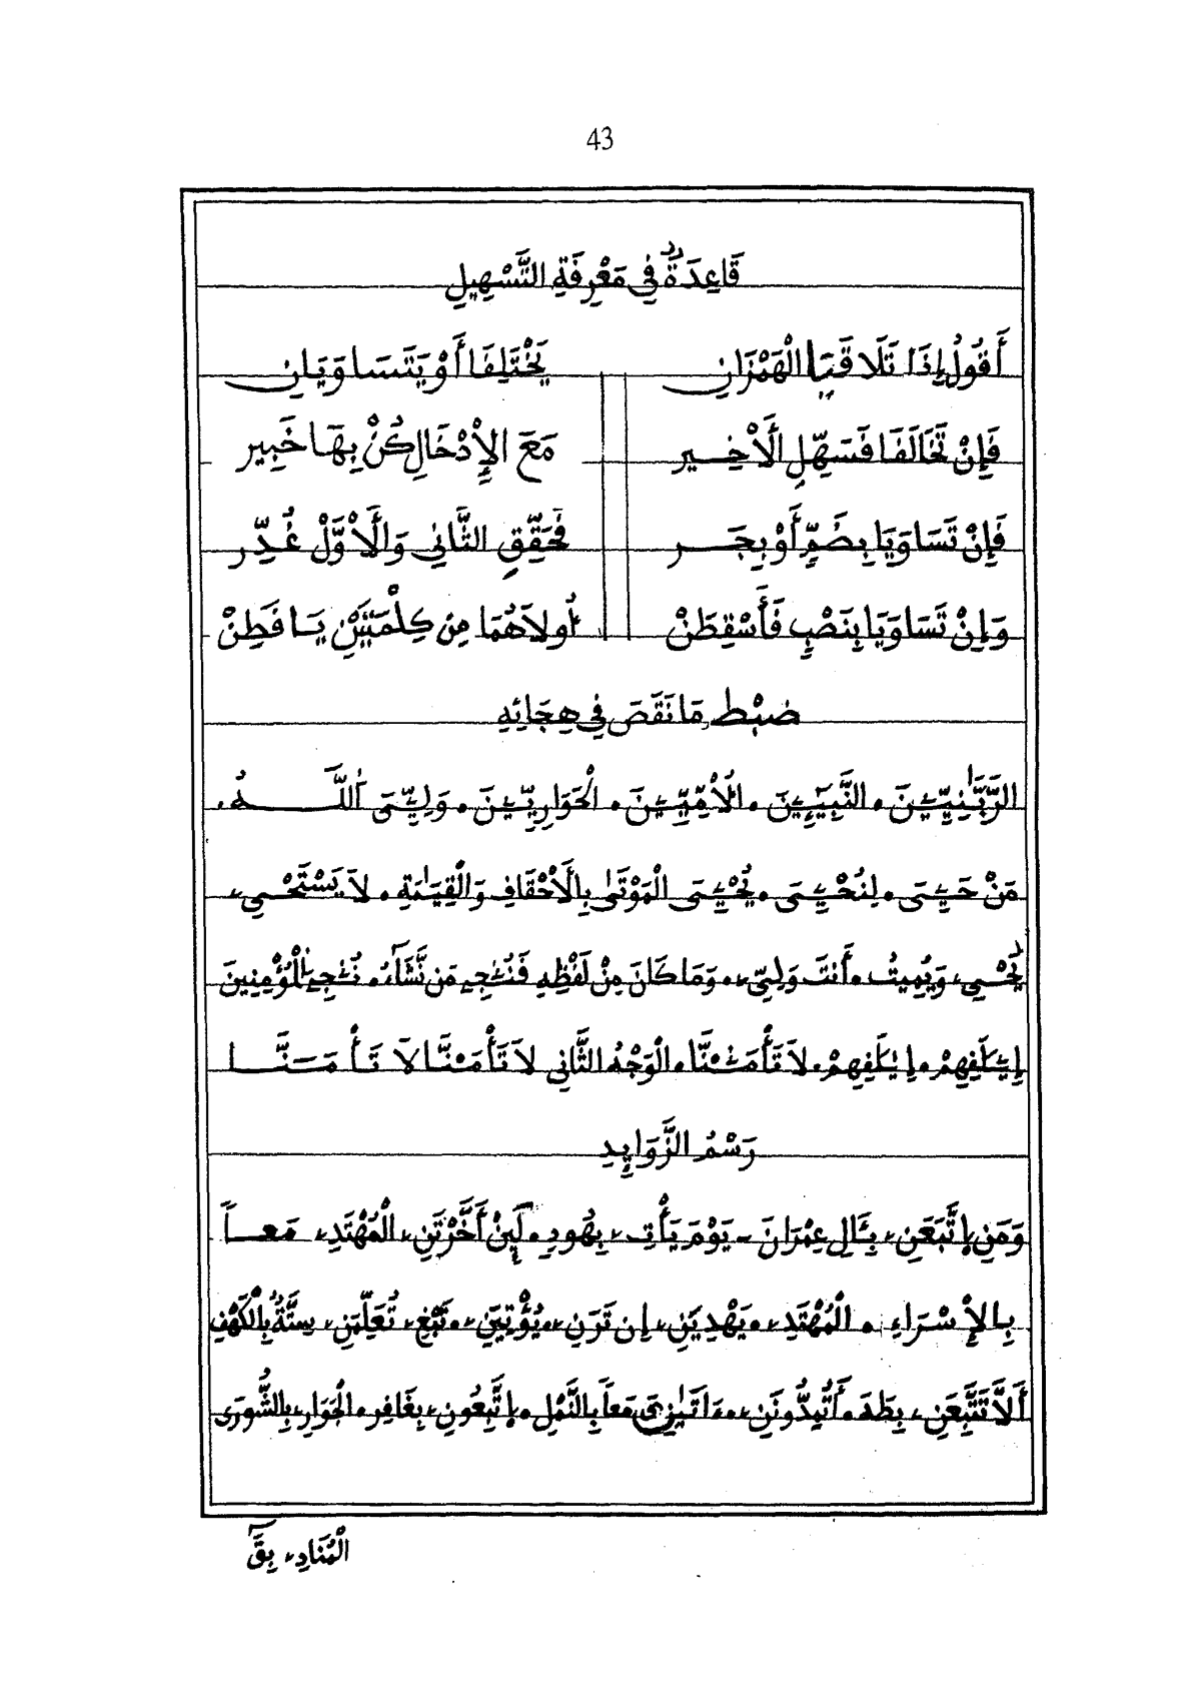 43
قَاعِدَةٌ فِي مَعْرِفَةِ التَّسْهِيلِ
أَقُولُ إِذَا تَلَاقَيَا الْهَمْزَانِ يَخْتَلِفَا أَوْ يَتَسَاوَيَانِ
فَإِنْ تَخَالَفَا فَسَهِّلِ الْأَخِير مَعَ الْإِدْخَالِ كُنْ بِهَا خَبِير
فَإِنْ تَسَاوَيَا بِضَمٍّ أَوْ بِجَر فَحَقِّقِ الثَّانِي وَالْأَوَّلْ غُدِّر
وَإِنْ تَسَاوَيَا بِنَصْبٍ فَأَسْقِطَنْ أُولَاهُمَا مِن كِلْمَتَيْنِ يَا فَطِنْ
ضَبْطُ مَا نَقَصَ فِي هِجَائِهِ
الرَّبَّٰنِيِّـۧنَ . النَّبِيَـِٕۧنَ . الْأُمِّيِّـۧنَ . الْحَوَارِيِّـۧنَ . وَلِيِّـۧيَ اَللَّهُ .
مَنْ حَيِـۧيَ . لِنُحْـِۧيَ . يُحْـِۧيَ الْمَوْتَىٰ بِالْأَحْقَافِ وَالْقِيَٰمَةِ . لَا يَسْتَحْيِۦ
يُحْيِۦ وَيُمِيتُ . أَنتَ وَلِيِّۦ . وَمَا كَانَ مِنْ لَفْظِهِ فَنُۨجِے مَن نَّشَآءُ . نُۨجِے اِلْمُؤْمِنِينَ
إِۦلَٰفِهِمْ . إِۦلَٰفِهِمْ . لَا تَأْمَ۬نَّا . الْوَجْهُ الثَّانِي لَا تَأْمَنَّا لَا تَأْمَنَّا
رَسْمُ الزَّوَايِدِ
وَمَنِ اِتَّبَعَنِۦ بِـَٔالِ عِمْرَانَ - يَوْمَ يَأْتِۦ بِهُودٍ . لَئِنْ أَخَّرْتَنِۦ الْمُهْتَدِۦ مَعاً
بِالْإِسْرَاءِ . الْمُهْتَدِۦ . يَهْدِيَنِۦ إِن تَرَنِۦ . يُؤْتِيَنِۦ . نَبْغِۦ تُعَلِّمَنِۦ سِتَّةٌ بِالْكَهْفِ
أَلَّا تَتَّبِعَنِۦ بِطَهَ . أَتُمِدُّونَنِۦ . ءَاتَىٰنِۦَ مَعاً بِالنَّمْلِ . اِتَّبِعُونِۦ بِغَافِرٍ . الْجَوَارِۦ بِالشُّورَى
الْمُنَادِۦ بِقَٓ